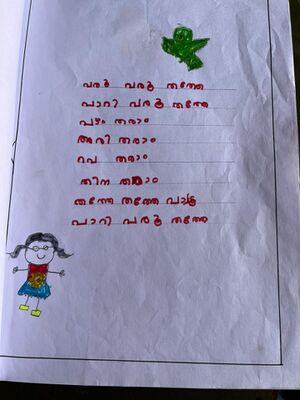 വരൂ വരൂ തത്തേ
പാറി വരൂ തത്തേ
പഴം തരാം
അരി തരാം
റവ തരാം
തിന തരാം
തത്തേ തത്തേ പാടൂ
പാറി വരൂ തത്തേ